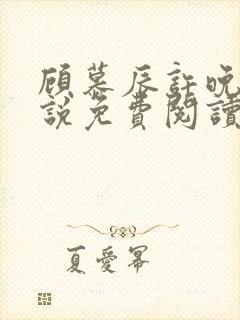 顾慕辰許晚
說免費閱讀
夏愛冪